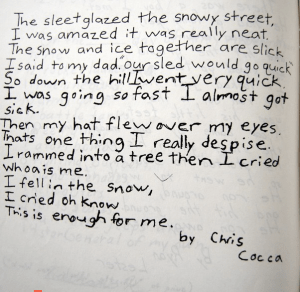 The sleet glazed the snowy street,
I was amazed it was really neat.
The snow and ice together are slick
I said to my dad. Our sled would go quick
So down the hill I went very quick.
I was going so fast I almost got
sick.
Then my hat flew over my eyes.
Thats one thing I really despise.
I rammed into a tree then I cried
whoa is me.
I fell in the snow,
I cried oh know
This is enough for me.
by Chris
Cocca